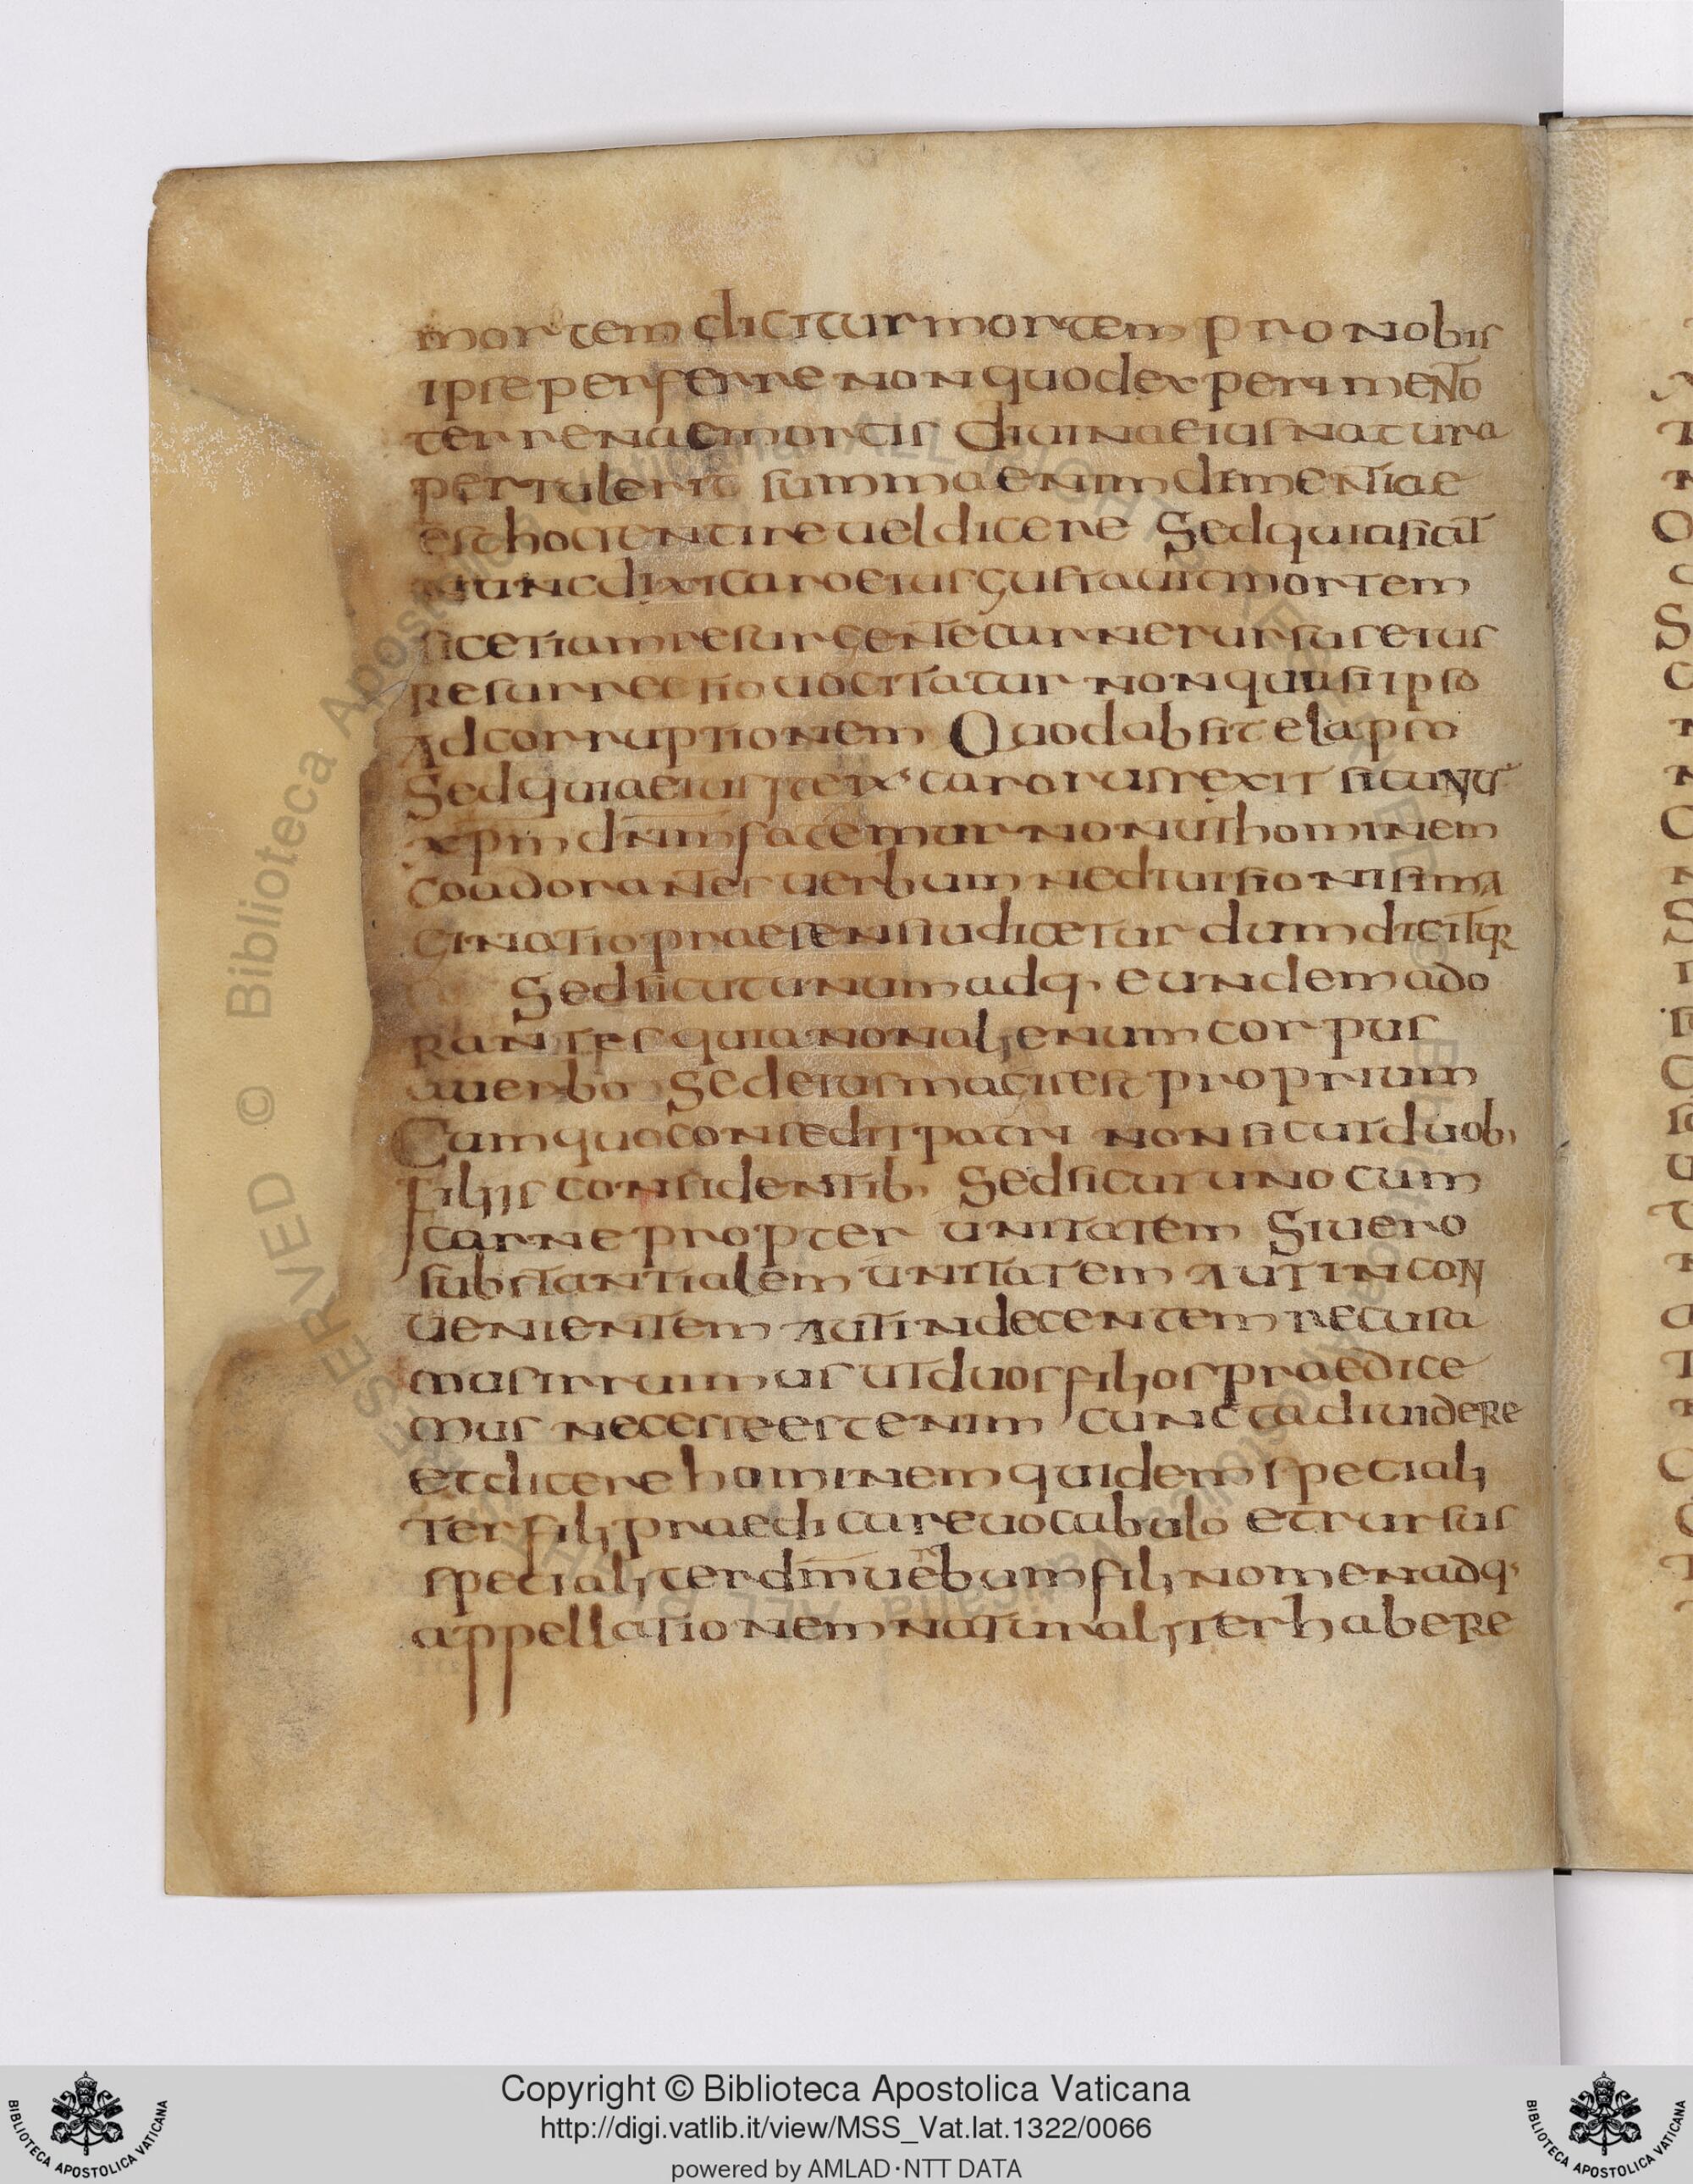 mortem dicitur mortem pro nobis
ipse perferre non quod experimento
terrenae mortis diuina eius natura
pertulerit summa enim dimentiae
est hoc sentire uel dicere Sed quia sicut
nunc dixi caro eius gustauit mortem
sic etiam resurgente carne rursus eius
resurrectio uocitatur non quasi ipso
ad corruptionem Quod absit elapso
Sed quia eius caro rusrexit sic unu
xpm dnm fatemur non ut hominem
coadorantes uerbum ne diuisionis ima
ginatio praesens iudicetur dum dicitur
Sed sicut unum adq· eundem ado
rantes quia non alienum corpus
a uerbo Sed eius magis est proprium
Cum quo consedit patri non sicut duob·
filiis considentib· Sed sicut uno cum
carne propter unitatem Si uero
substantialem unitatem aut incon
uenientem aut indecentem recusa
mus irruimus ut duos filios praedice
mus necesse est enim cuncta diuidere
et dicere hominem quidem speciali
ter fili praedicare uocabulo et rursus
specialiter dm uerbum fili nomen adq·
appellationem naturaliter habere
Copyright © Biblioteca Apostolica Vaticana
http://digi.vatlib.it/view/MSS_Vat.lat.1322/0066
powered by AMLAD·NTT DATA
BIBLIOTECA APOSTOLICA VATICANA
BIBLIOTECA APOSTOLICA VATICANA